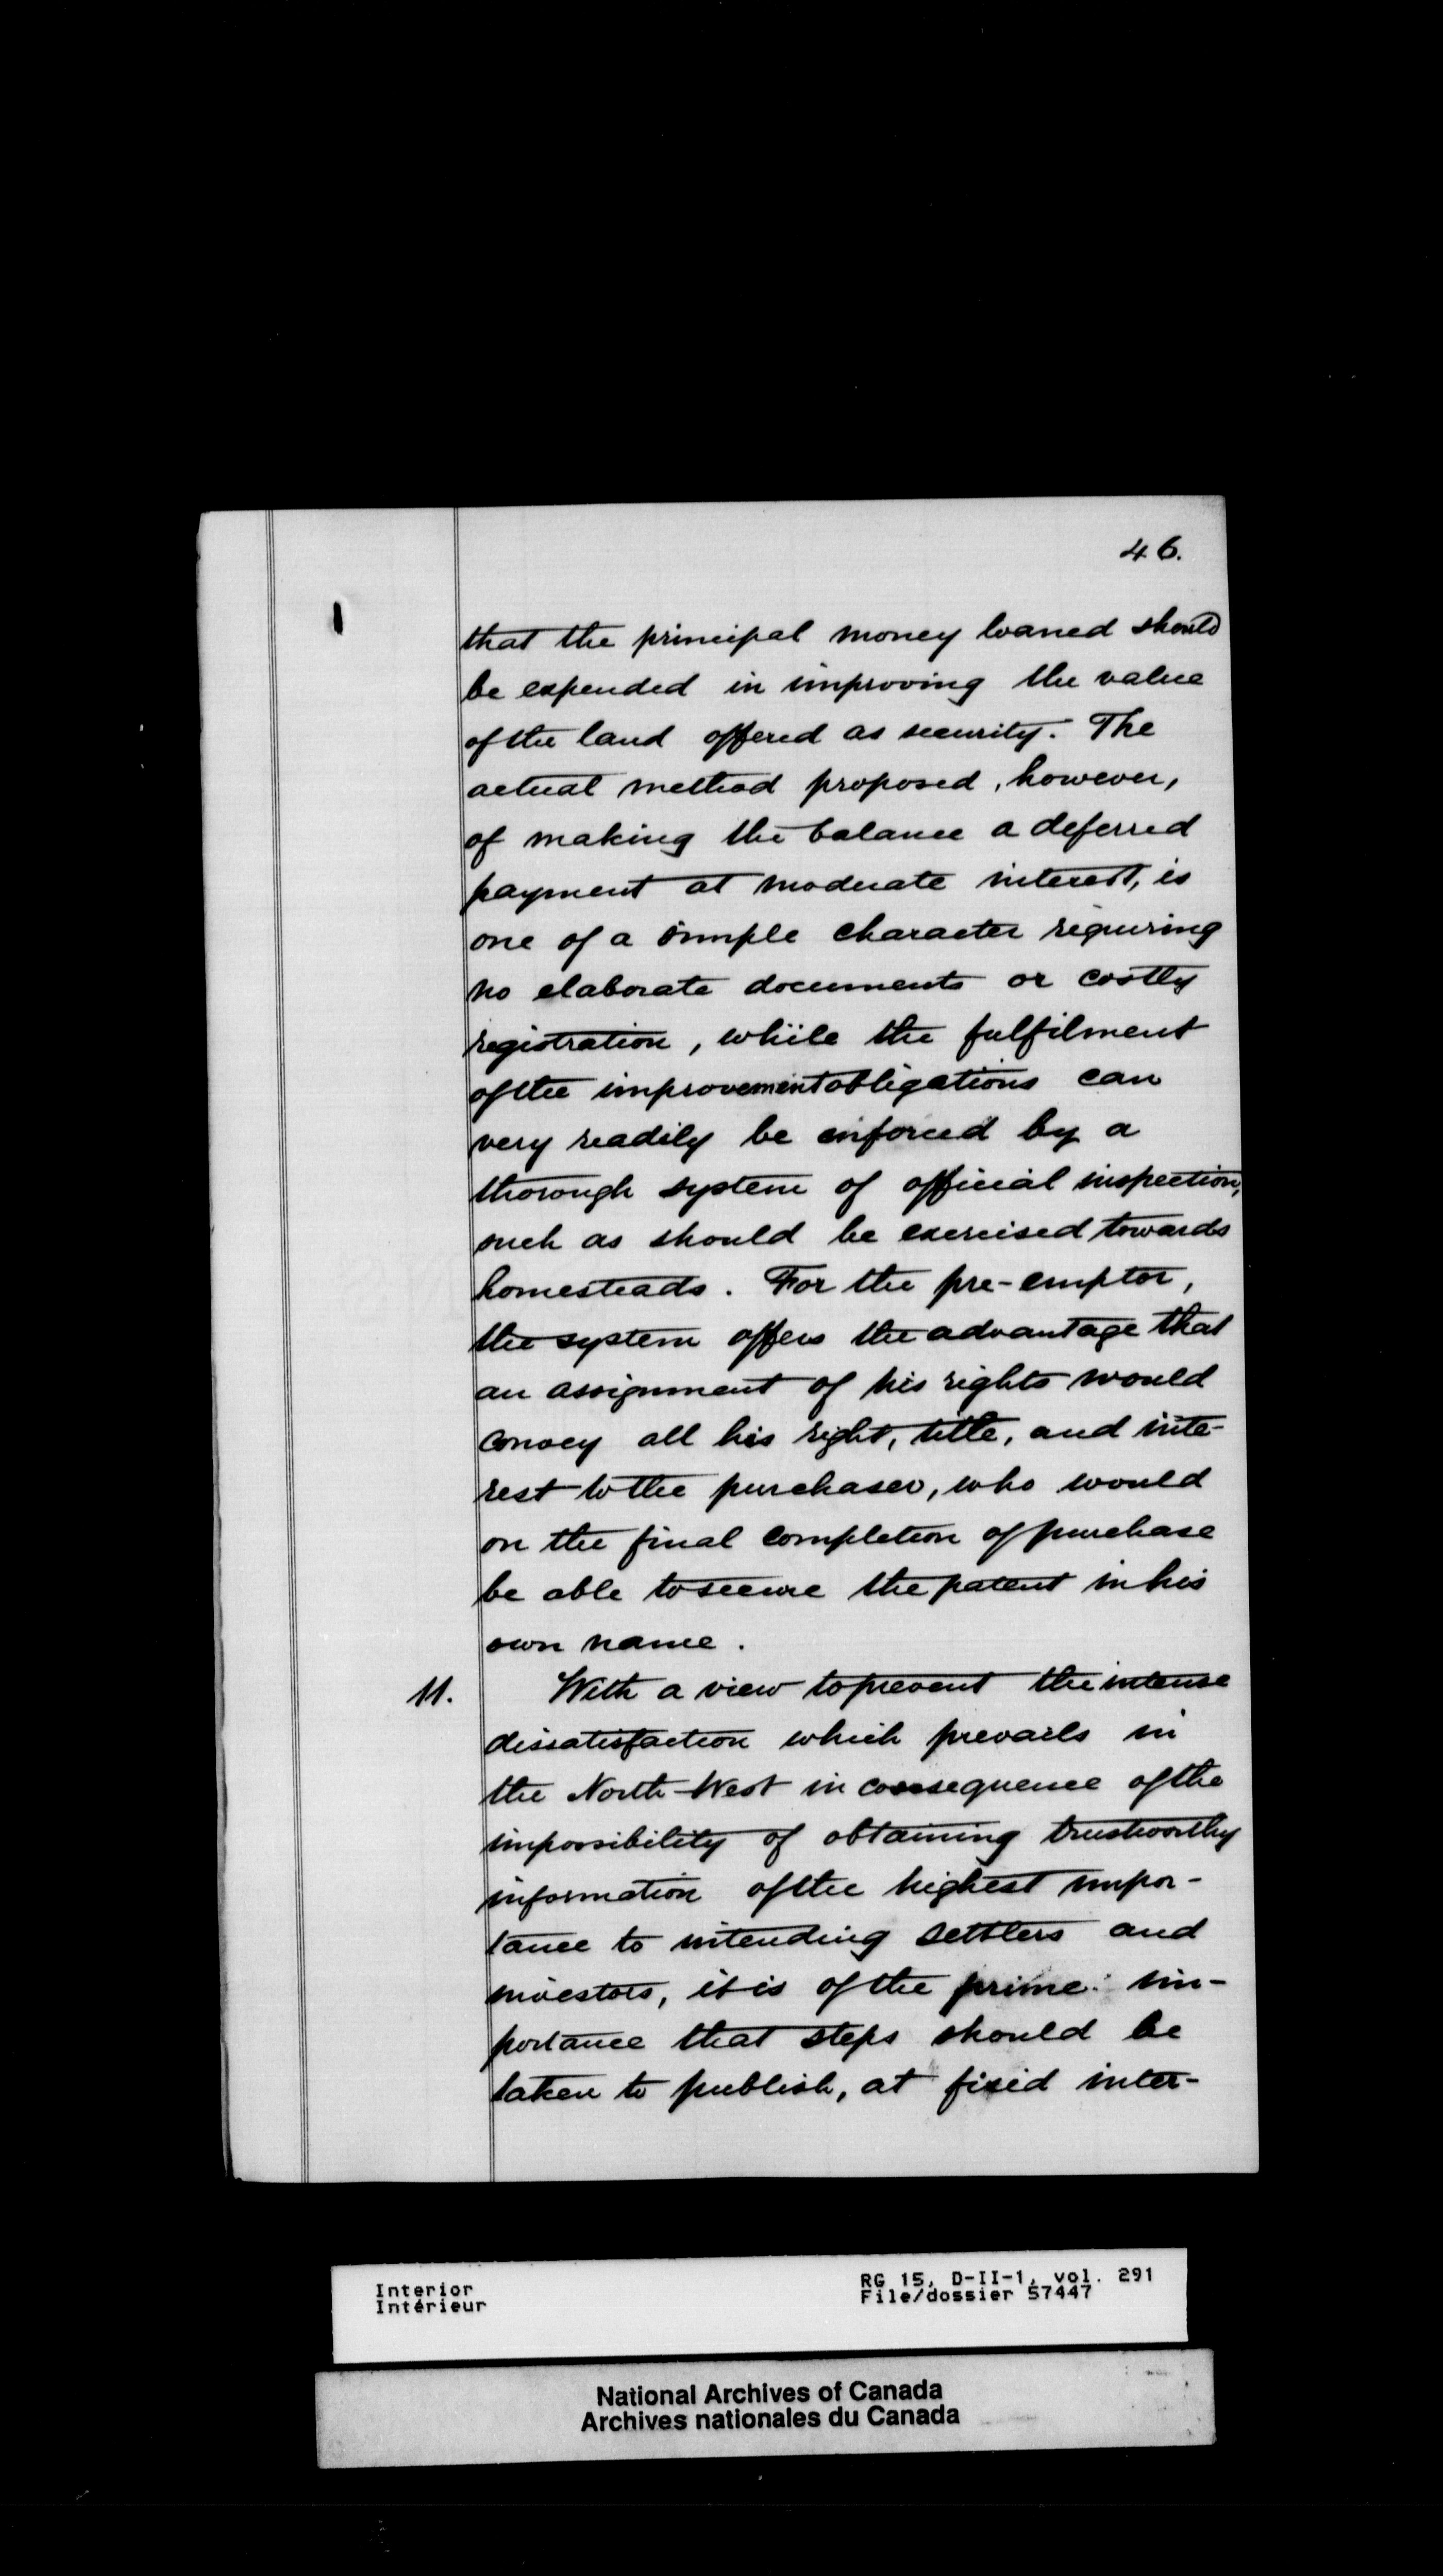 46.
that the principal money loaned should
be expended in improving the value
of the land offered as security. The
actual method proposed, however,
of making the balance a deferred
payment at moderate interest, is
one of a simple character requiring
no elaborate documents or costly
registration, while the fulfilment
of the improvement obligations can
very readily be enforced by a
thorough system of official inspection,
such as should be exercised towards
homesteads. For the pre-emptor,
the system offers the advantage that
an assignment of his rights would
convey all his right, title, and inte-
rest to the purchaser, who would
on the final completion of purchase
be able to secure the patent in his
own name.
11. With a view to prevent the intense
dissatisfaction which prevails in
the North-West in consequence of the
impossibility of obtaining trustworthy
information of the highest impor-
tance to intending settlers and
investors, it is of the prime im-
portance that steps should be
taken to publish, at fixed inter-
Interior
Intérieur
RG 15, D-II-1, vol. 291
File/dossier 57447
National Archives of Canada
Archives nationales du Canada